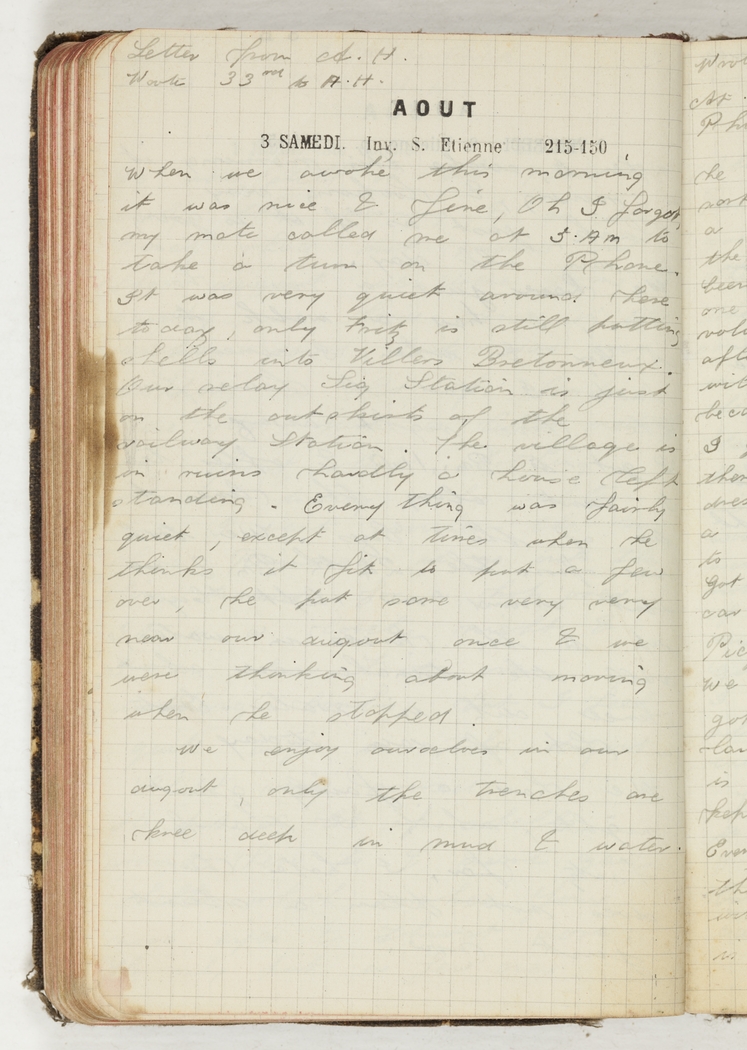 Letter from A. H.
Wrote 33rd to A. H.
AOUT
3 SAMEDI. Inv. S. Etienne 215-150
When we awoke this morning
it was nice & fine, Oh I forgot,
my mate called me at 5. Am to
take a turn on the Phone.
It was very quiet around here
today, only Fritz is still putting
shells into Villers Bretonneux.
Our relay Sig Station is just
on the outskirts of the
railway Station. The village is
in ruins hardly a house left
standing. Every thing was fairly
quiet, except at times when he
thinks it fit to put a few
over, he put some very very
near our dugout once & we
were thinking about moving
when he stopped.
We enjoy ourselves in our
dugout, only the trenches are
knee deep in mud & water.
Wrot
At
Ph
he
nort
a
the
been
one
volu
afte
wit
beca
I
then
dres
a
to
got
car
Pic
we
got
is
kep
Ever
th